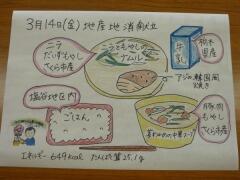 3月14日(金)地産地消献立
ニラ
だいずもやし
さくら市産
ニラともやしの
ナムル
牛乳
栃木
県産
アジの韓国風
焼き
塩谷地区内
ごはん
豚肉
もやし
さくら市産
中華スープ
エネルギー 649kcal たんぱく質25.1g